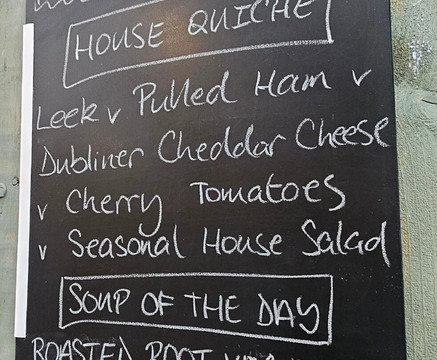 HOUSE QUICHE
Leek v Pulled Ham v
Dubliner Cheddar Cheese
v Cherry Tomatoes
v Seasonal House Salad
SOUP OF THE DAY
ROASTED ROOT